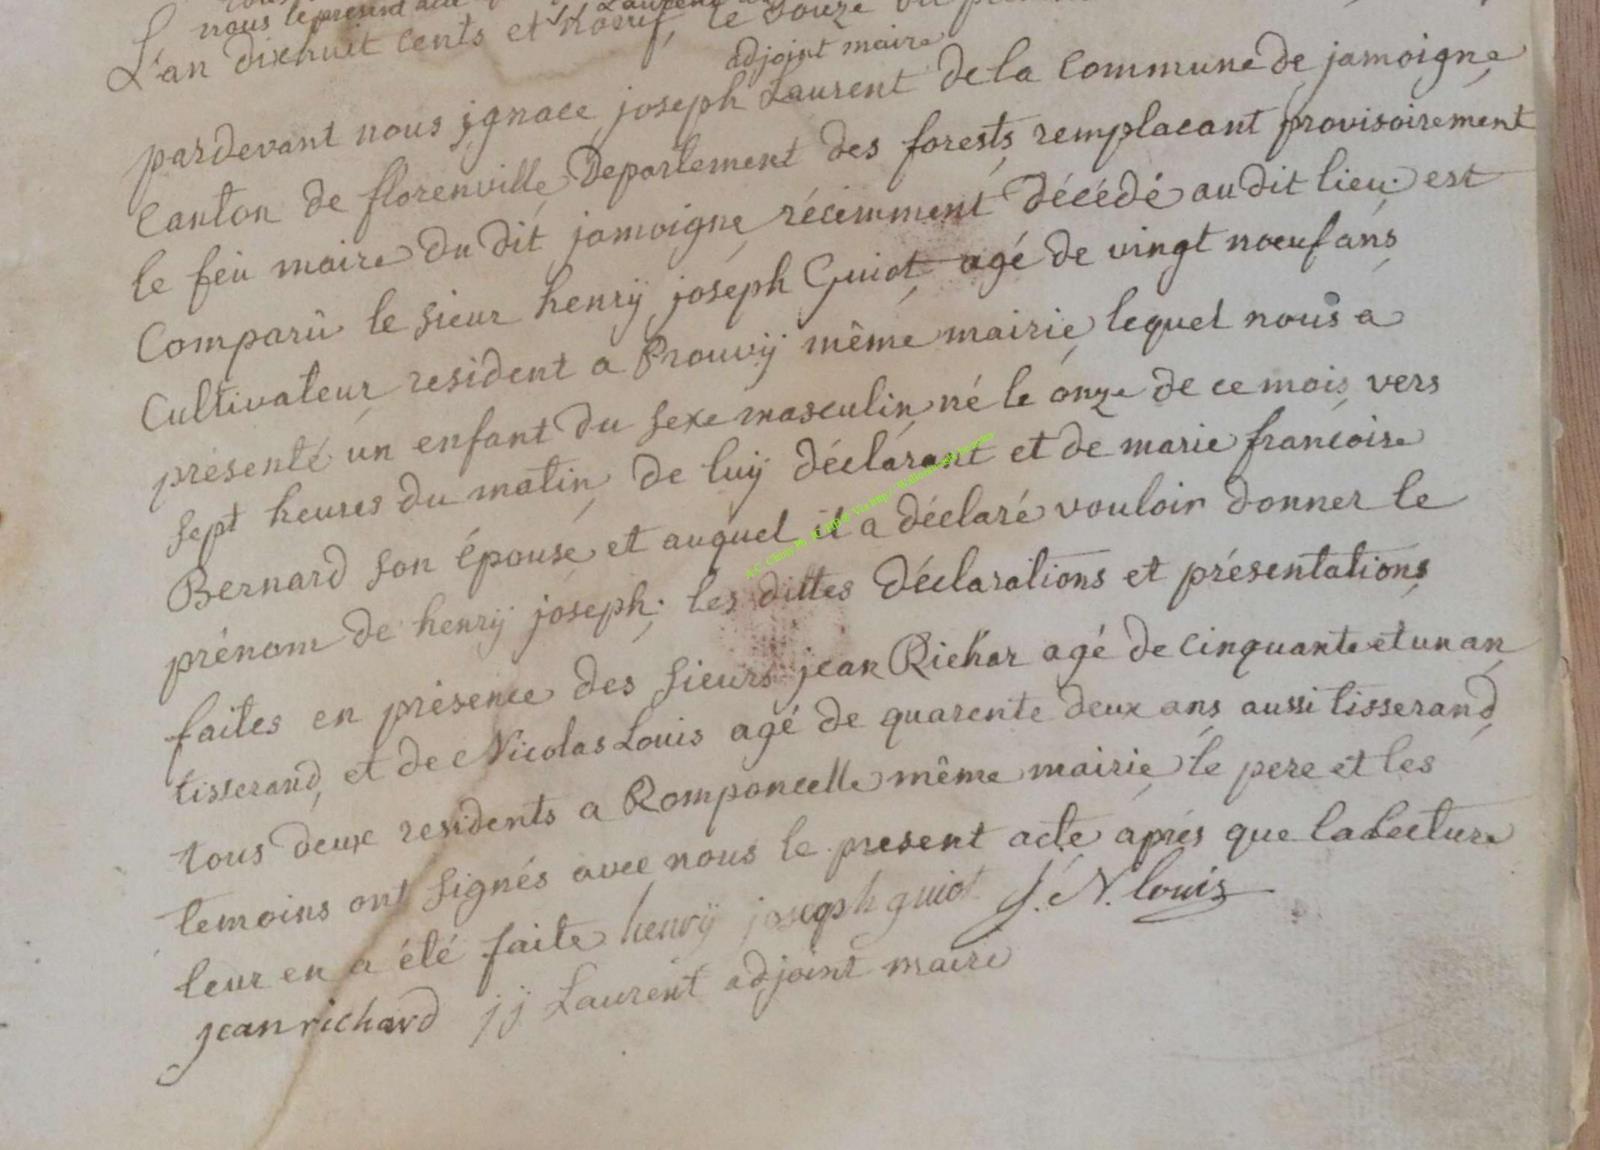 nous le present acte
L'an dixhuit cents et noeuf, le douze du
adjoint maire
pardevant nous jgnace joseph Laurent de la Commune de jamoigne
Canton de florenville Departement des forests, remplacant provisoirement
le feu maire du dit jamoigne récemment décédé au dit lieu. est
Comparû le sieur henrÿ joseph Guiot agé de vingt noeuf ans
Cultivateur resident a Prouvÿ même mairie, lequel nous a
présenté un enfant du sexe masculin né le onze de ce mois vers
sept heures du matin de luÿ déclarant et de marie francoise
Bernard son épouse, et auquel il a déclaré vouloir donner le
prénom de henrÿ joseph; les dittes déclarations et présentations
faites en présence des sieurs jean Richar agé de cinquante et un an
tisserand, et de Nicolas Louis agé de quarente deux ans aussi tisserand
tous deux residents a Romponcelle même mairie, le pere et les
temoins ont signés avec nous le present acte après que la lecture
leur en a été faite henrÿ joseph guiot J. N. louis
jean richard jj Laurent adjoint maire